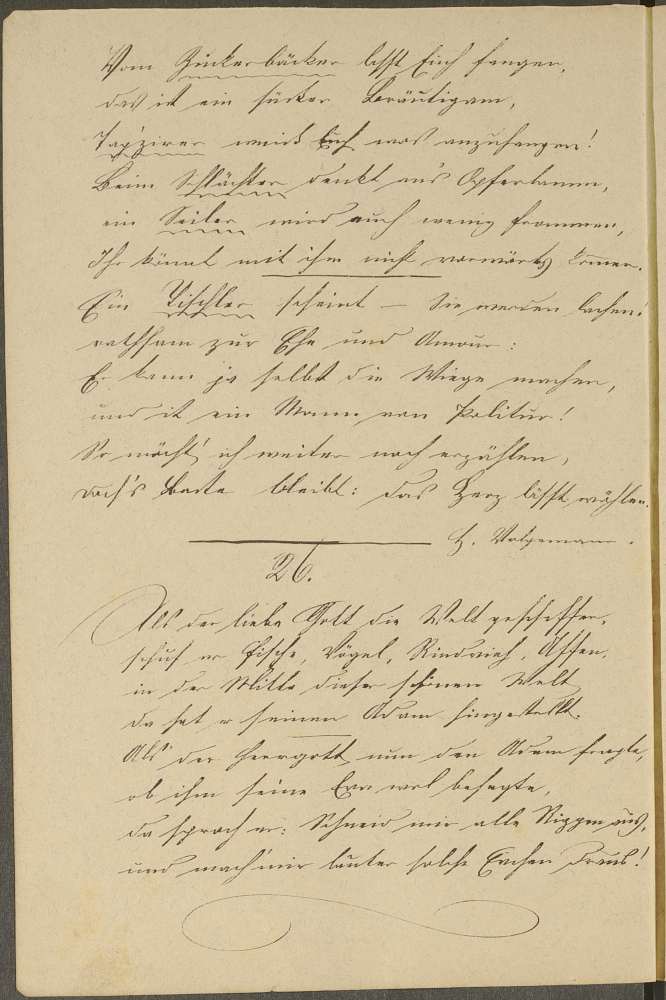 Vom Zuckerbäcker lasst Euch fangen,
das ist ein süßer Bräutigam,
Tapzirer weiß Euch was anzuhangen!
Beim Schlächter denkt an's Opferlamm,
ein Seiler wird auch wenig frommen,
Ihr könnt mit ihm nicht vorwärts kommen.
Ein Tischler scheint – Sie werden lachen!
rathsam zur Ehe und Amour:
Er kann ja selbst die Wiege machen,
und ist ein Mann von Politur!
So möcht' ich weiter noch erzählen,
doch's Beste bleibt: das Herz lässt wählen.
H.
26.
Als der liebe Gott die Welt geschaffen,
schuf er Fische, Vögel, Rindvieh, Affen,
in der Mitte dieser schönen Welt
da hat er seinen Adam hingestellt.
Als der Herrgott nun den Adam fragte,
ob ihm seine Eva wol behagte,
da sprach er: Schneid mir alle Rippen aus,
und mach' mir lauter solche Evchen draus!